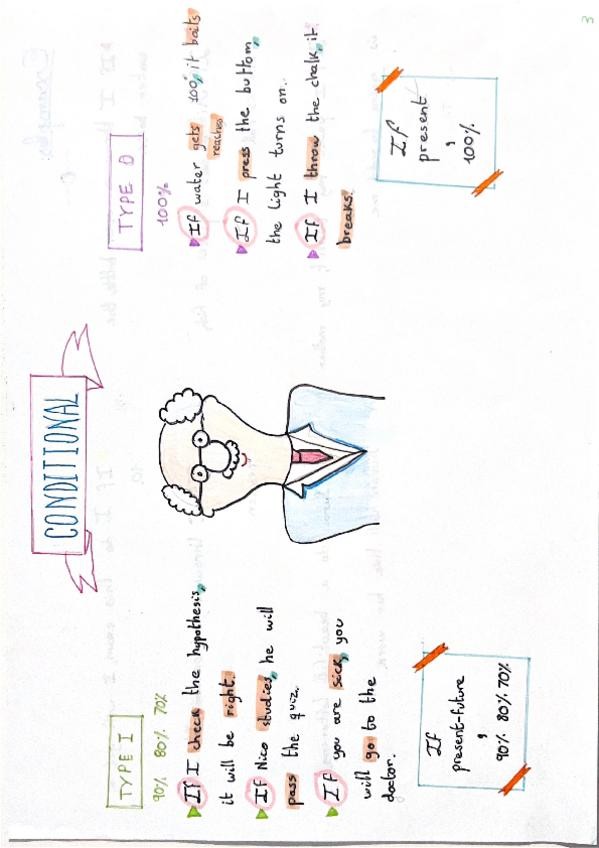 CONDITIONAL
TYPE I
90% 80% 70%
If I check the hypothesis,
it will be right.
If Nico studies, he will
pass the quiz.
If you are sick, you
will go to the
doctor.
If
present-future
,
90% 80% 70%
TYPE 0
100%
If water gets 100, it boils
reaches
If I press the buttom,
the light turns on.
If I throw the chalk, it
breaks.
If
present
,
100%
3